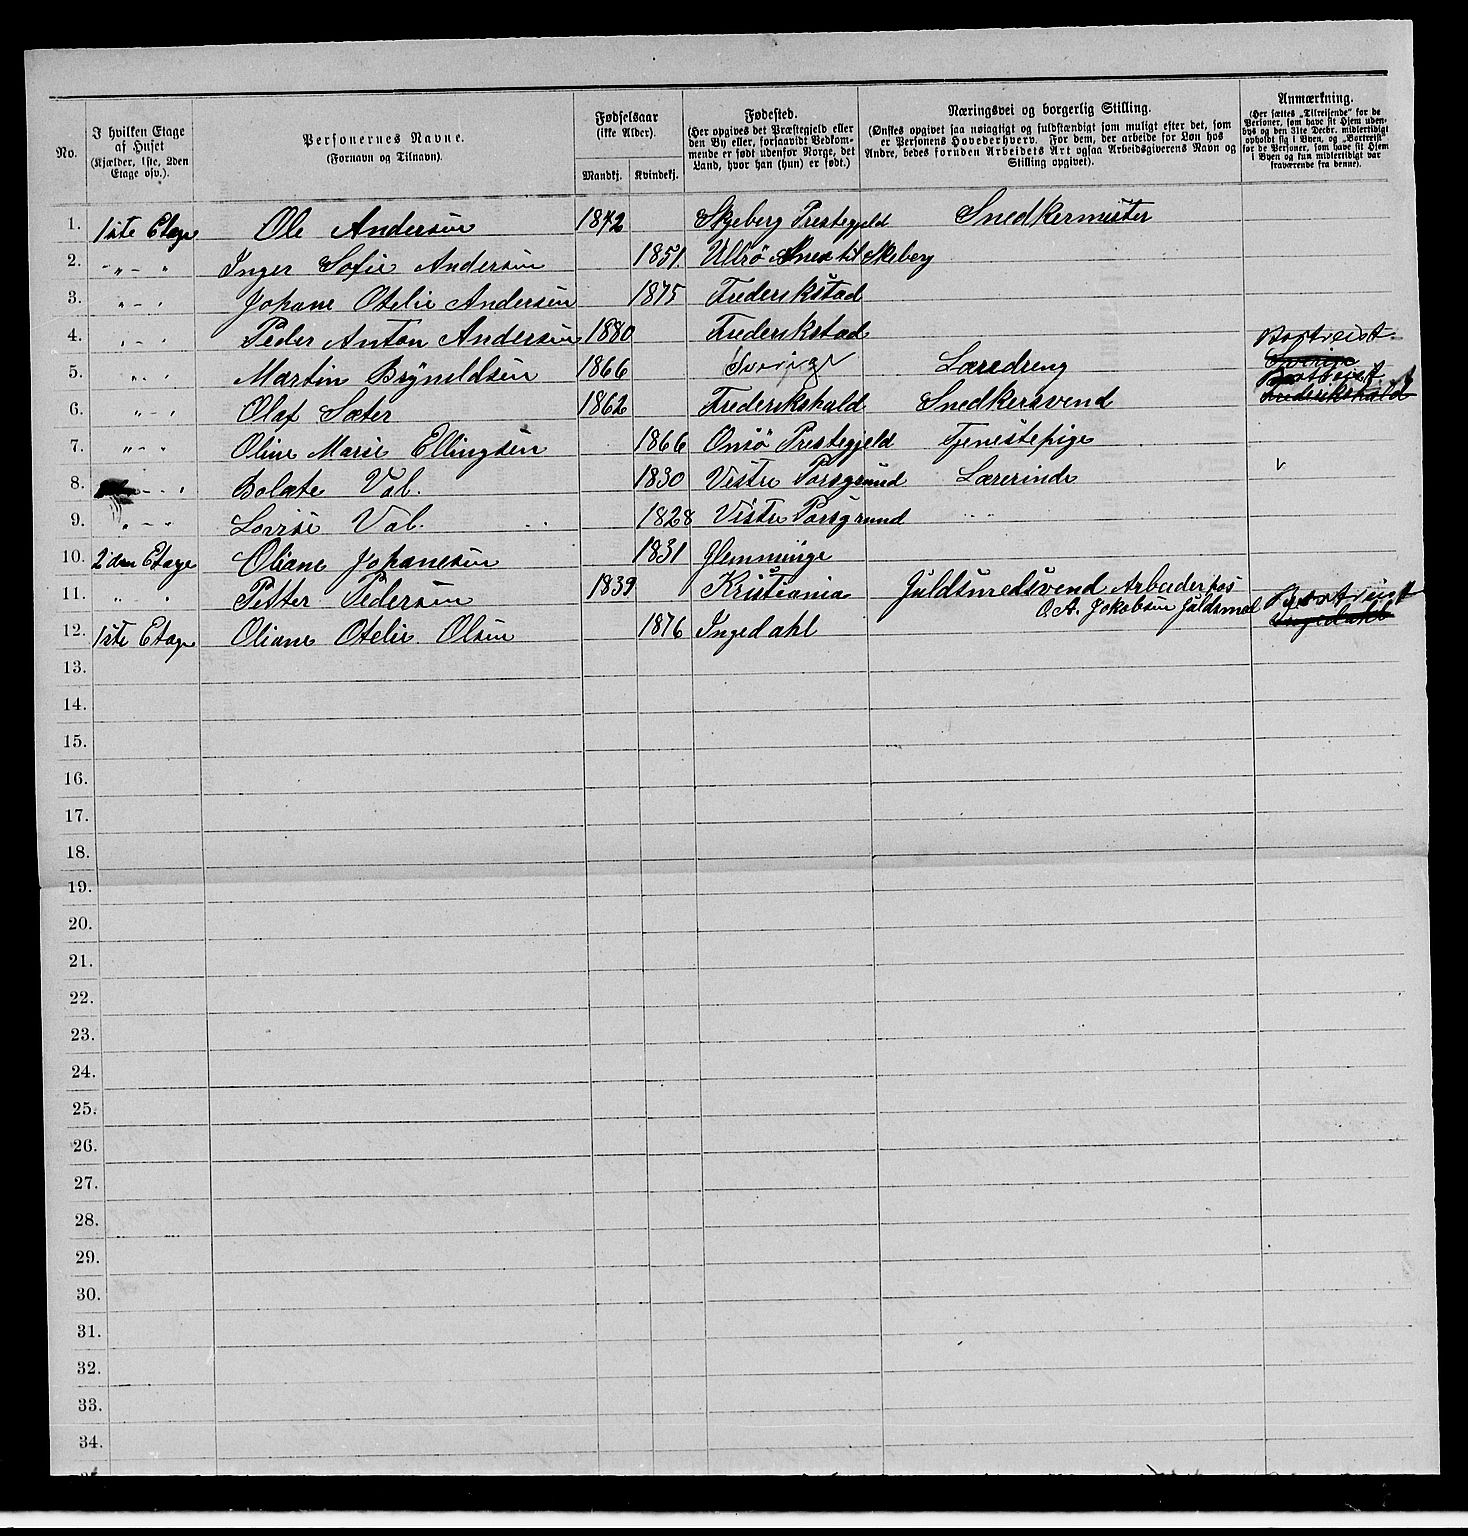 No. | I hvilken Etage af Huset (Kjælder, 1ste, 2den Etage osv.). | Personernes Navne. (Fornavn og Tilnavn). | Fødselsaar (ikke Alder). Mandkj. | Kvindekj. | Fødested. (Her opgives det Præstegjeld eller den By eller, forsaavidt Bedkommende er født udenfor Norge, det Land, hvor han (hun) er født.) | Næringsvei og borgerlig Stilling. (Ønskes opgivet saa nøiagtigt og fuldstændigt som muligt efter det, som er Personens Hovederhverv. For dem, der arbeide for Løn hos Andre, bedes foruden Arbeidets Art ogsaa Arbeidsgiverens Navn og Stilling opgivet). | Anmærkning. (Her sættes „Tilreisende" for de Personer, som have sit Hjem udenbys og den 31te Decbr. midlertidigt opholdt sig i Byen, og „Bortreist" for de Personer, som have sit Hjem i Byen og kun midlertidigt var fraværende fra denne).
1. | 1ste Etage | Ole Andersen | 1842 | | Skjeberg Prestegjeld | Snedkermester
2. | „ - „ | Inger Sofie Andersen | | 1851. | Ullrø Anex til Skeberg
3. | „ - „ | Johane Otelie Andersen | | 1875 | Frederikstad
4. | „ - „ | Peder Anton Andersen | 1880 | | Frederikstad
5. | „ - „ | Martin Brynildsen | 1866 | | Sverige | Læredreng | Bortreist Sverige
6. | „ - „ | Olaf Sæter | 1862 | | Frederikshald | Snedkersvend | Bortreist Frederikshald
7. | „ - „ | Oline Marie Ellingsen | | 1866 | Onsø Prestegjeld | Tjenestepige
8. | - „ | Bolæte Val. | | 1830 | Vestre Porsgrund | Lærerinde | v
9. | „ - „ | Lovise Val. | | 1828 | Vestre Porsgrund | „ „
10. | 2den Etage | Oliane Johanesen | | 1831 | Glemminge
11. | „ „ | Petter Pedersen | 1839 | | Kristiania | Guldsmedsvend Arbeider hos O. A. Jakobsen Guldsmed
12. | 1ste Etage | Oliane Otelie Olsen | | 1876 | Ingedahl | | Bortreist Ingedahl
13.
14.
15.
16.
17.
18.
19.
20.
21.
22.
23.
24.
25.
26.
27.
28.
29.
30.
31.
32.
33.
34.